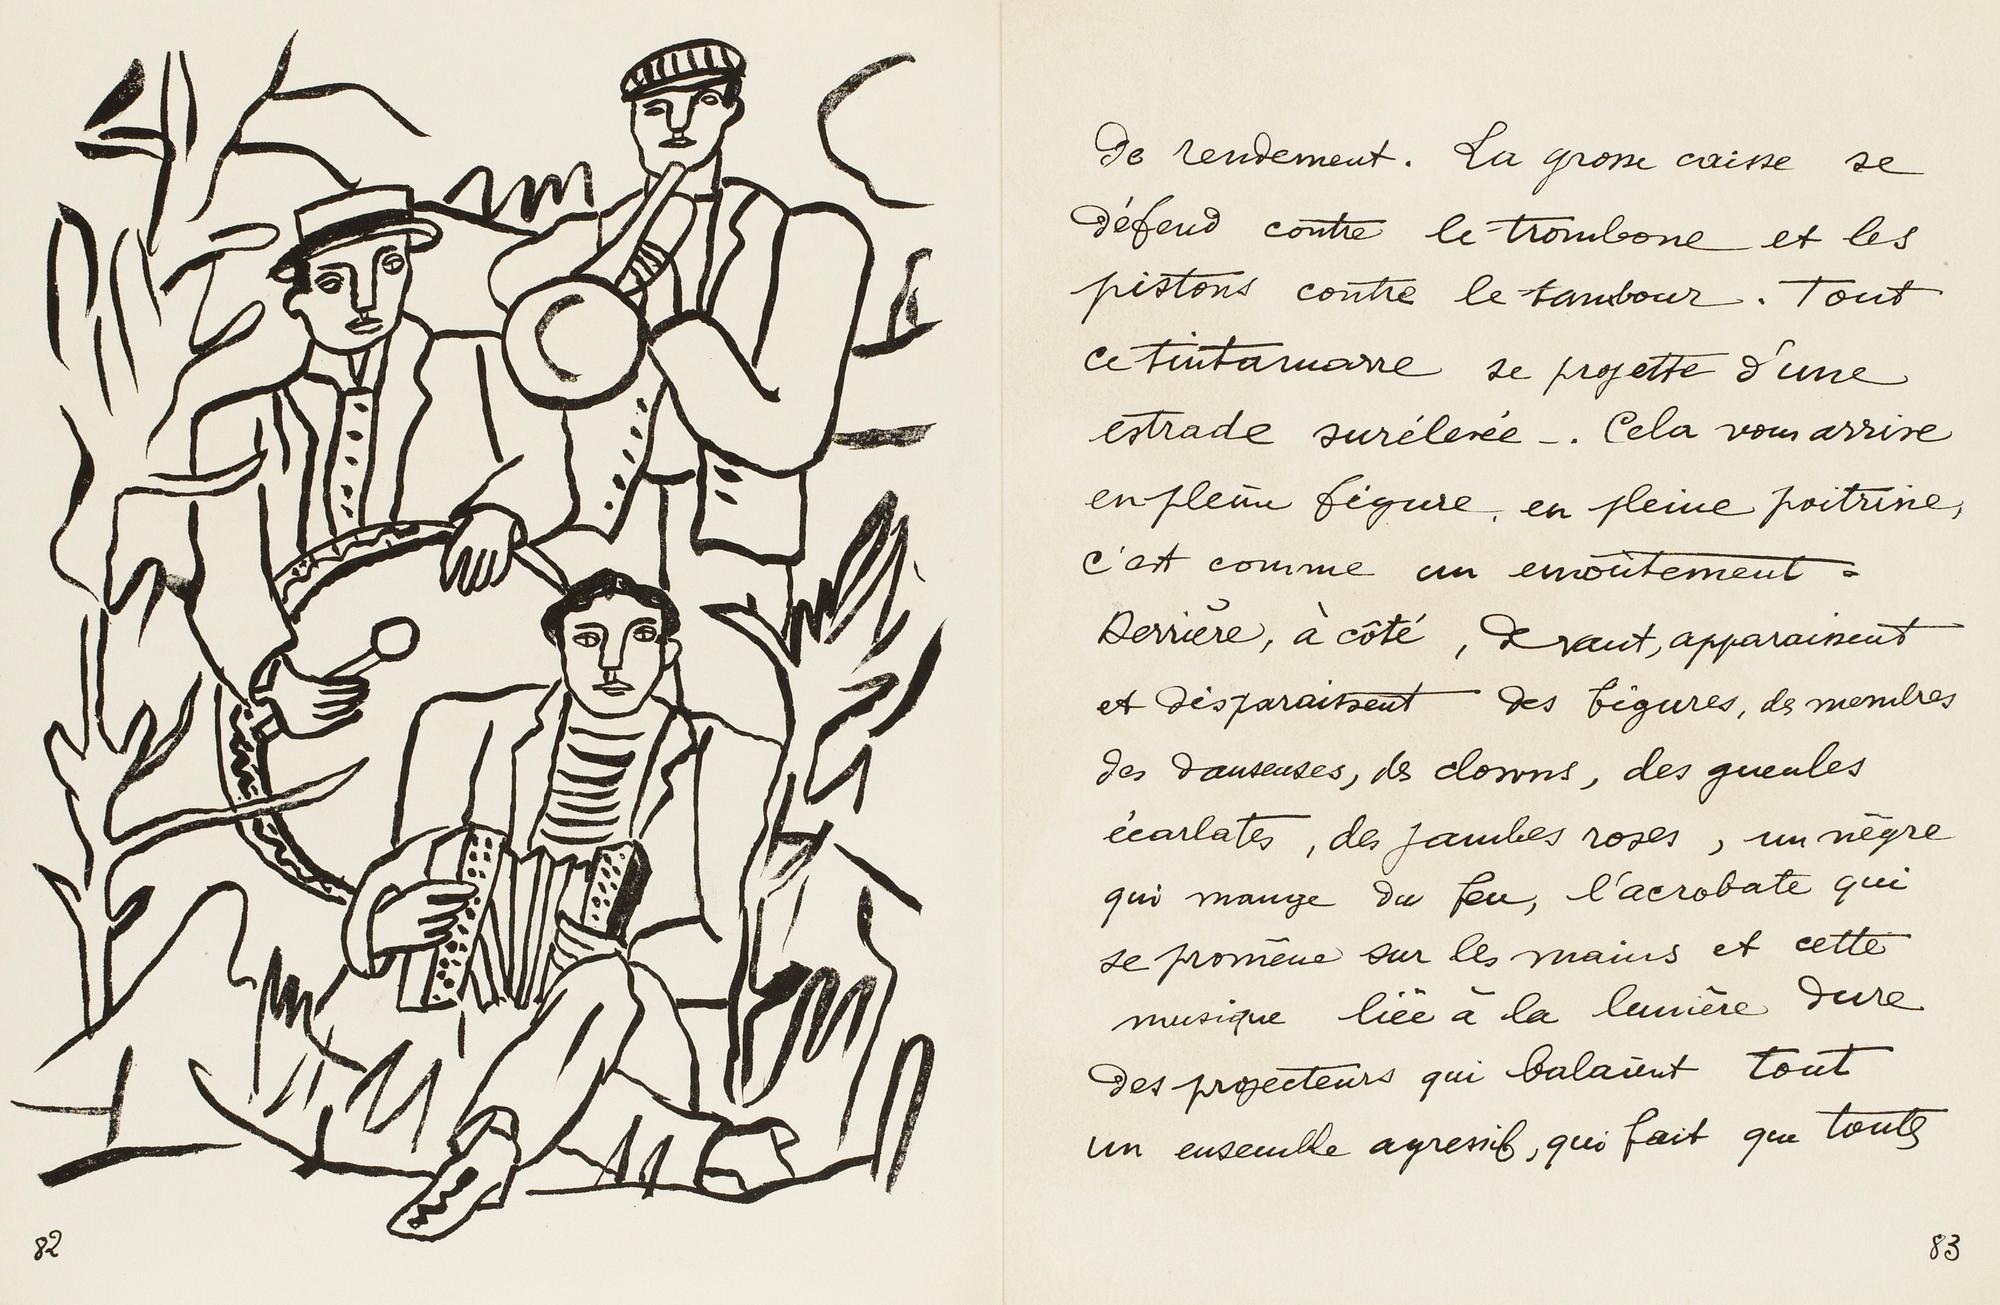 de rendement. La grosse caisse se
défend contre le trombone et les
pistons contre le tambour. Tout
ce tintamarre se projette d'une
estrade surélevée -. Cela vous arrive
en pleine figure, en pleine poitrine,
c'est comme un envoûtement -
Derrière, à côté, devant, apparaissent
et disparaissent des figures, des membres
des danseuses, des clowns, des gueules
écarlates, des jambes roses, un nègre
qui mange du feu, l'acrobate qui
se promène sur les mains et cette
musique liée à la lumière dure
des projecteurs qui balaient tout
un ensemble agressif, qui fait que toutes
82
83